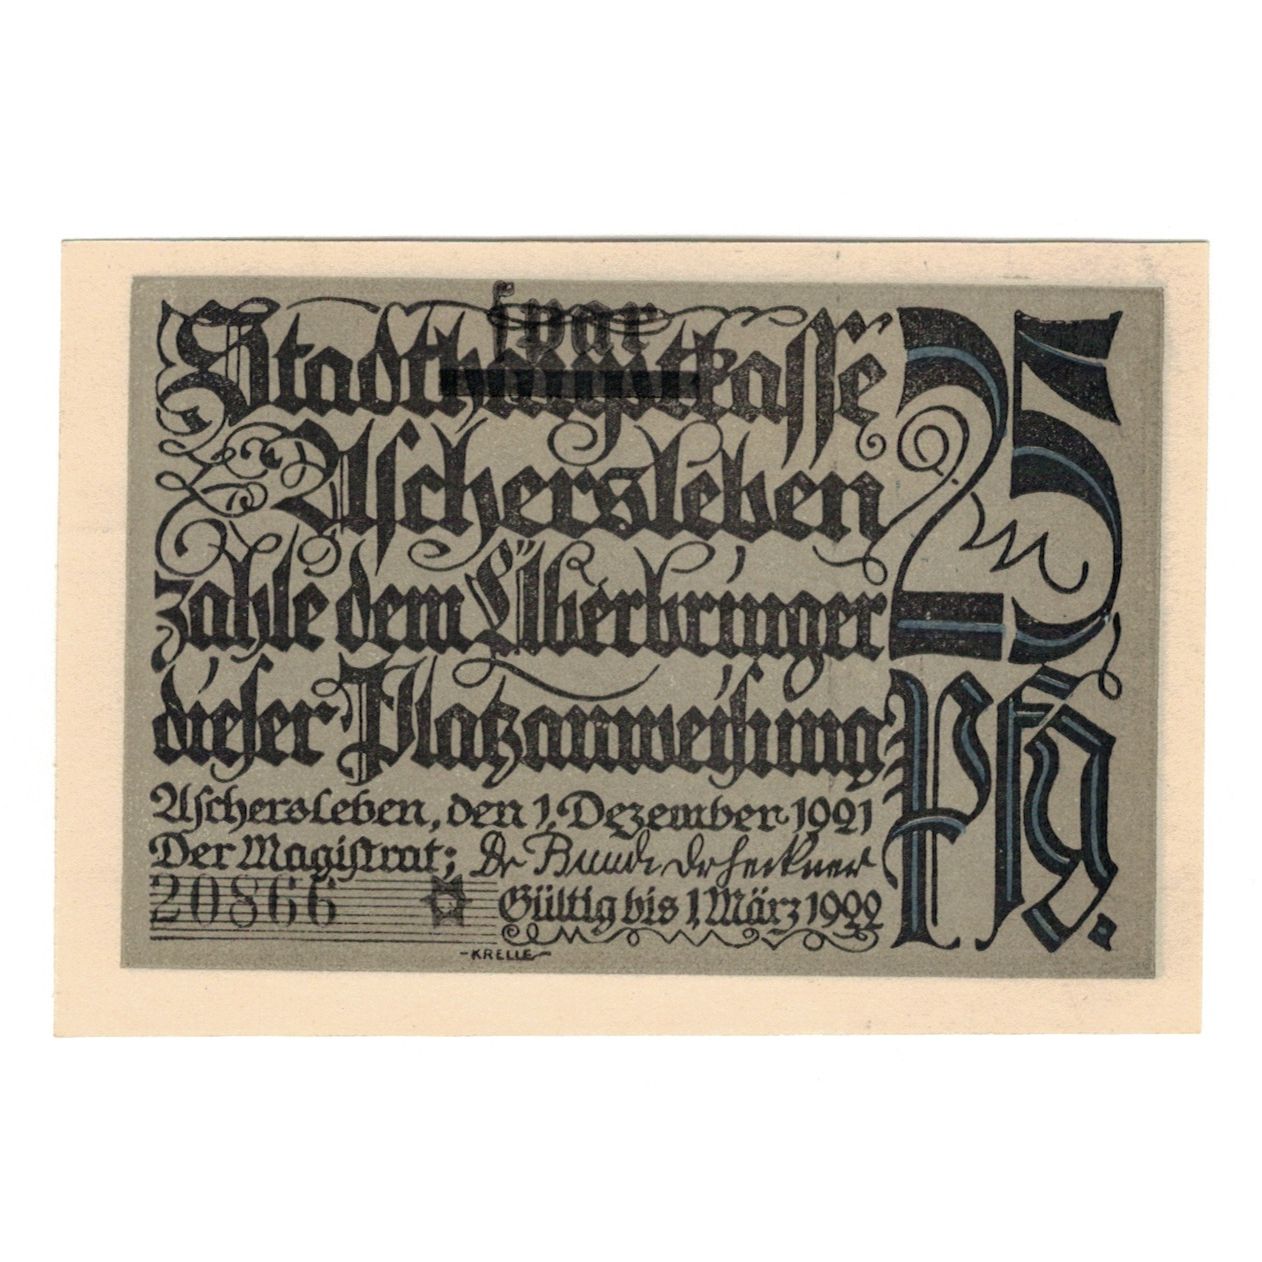 spar
Stadthauptkasse
Aschersleben
zahle dem Überbringer
dieser Platzanweisung
25
Pfg.
Aschersleben, den 1. Dezember 1921
Der Magistrat;
20866
Gültig bis 1. März 1922
-KRELLE-